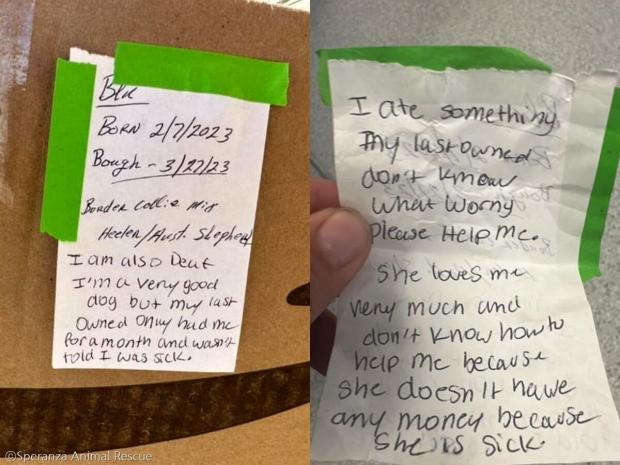 Blu
BORN 2/7/2023
Bough - 3/27/23
Border collie mix
Heeler/Aust. Shepherd
I am also Deaf
I'm a very good
dog but my last
owned only had me
for a month and wasn't
told I was sick.
I ate something
my last owned
don't know
what worny
please Help me.
She loves me
very much and
don't know how to
help me because
she doesn't have
any money because
she is sick.
©Speranza Animal Rescue